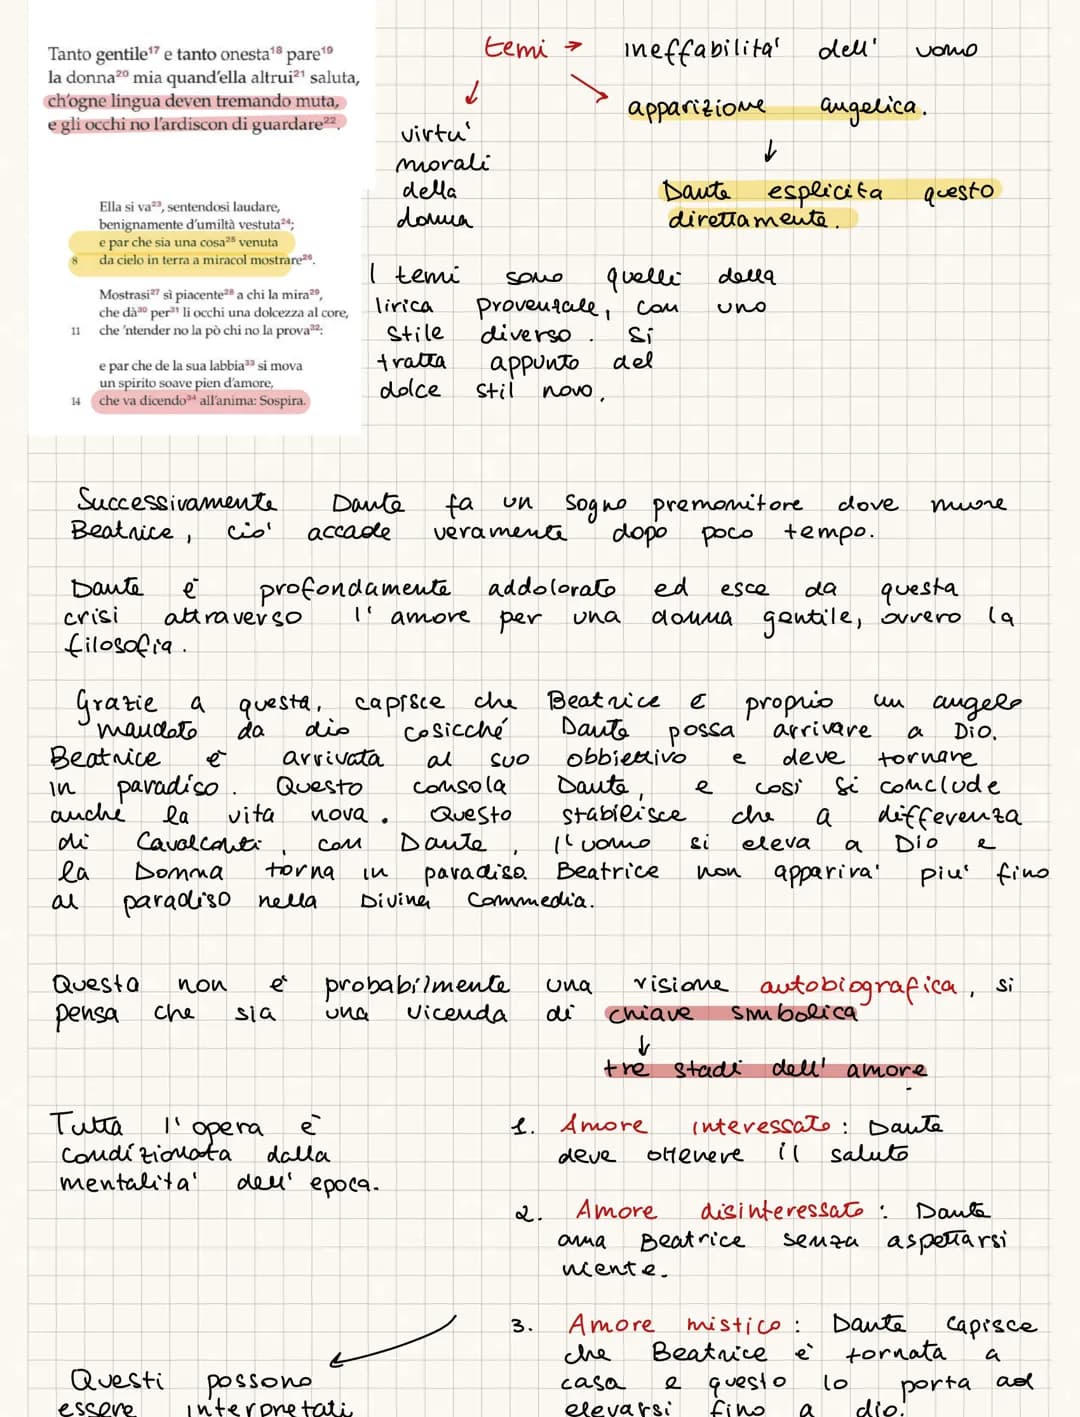 Tanto gentile17 e tanto onesta18 pare19
la donna20 mia quand'ella altrui21 saluta,
ch'ogne lingua deven tremando muta,
e gli occhi no l'ardiscon di guardare22.
Ella si va23, sentendosi laudare,
benignamente d'umiltà vestuta24;
e par che sia una cosa25 venuta
8 da cielo in terra a miracol mostrare26.
Mostrasi27 sì piacente28 a chi la mira29,
che dà30 per31 li occhi una dolcezza al core,
11 che 'ntender no la pò chi no la prova32:
e par che de la sua labbia33 si mova
un spirito soave pien d'amore,
14 che va dicendo34 all'anima: Sospira.
temi → ineffabilita' dell' uomo
apparizione angelica.
↓
Dante esplicita questo
direttamente.
virtu'
morali
della
donna
I temi sono quelli della
lirica provenzale, con uno
stile diverso. Si
tratta appunto del
dolce stil novo.
Successivamente Dante fa un sogno premonitore dove muore
Beatrice, cio' accade veramente dopo poco tempo.
Dante è profondamente addolorato ed esce da questa
crisi attraverso l'amore per una donna gentile, ovvero la
filosofia.
Grazie a questa, capisce che Beatrice è proprio un angelo
mandato da dio cosicché Dante possa arrivare a Dio.
Beatrice è arrivata al suo obbiettivo e deve tornare
in paradiso. Questo consola Dante, e cosi si conclude
anche la vita nova. Questo stabilisce che a differenza
di Cavalcanti, con Dante, l'uomo si eleva a Dio e
la Donna torna in paradiso. Beatrice non apparira' piu' fino
al paradiso nella Divina Commedia.
Questa non è probabilmente una visione autobiografica, si
pensa che sia una vicenda di chiave simbolica
↓
tre stadi dell' amore
Tutta l'opera è
condizionata dalla
mentalita' dell' epoca.
1. Amore interessato: Dante
deve ottenere il saluto
2. Amore disinteressato: Dante
ama Beatrice senza aspettarsi
niente.
3. Amore mistico: Dante capisce
che Beatrice è tornata a
casa e questo lo porta ad
elevarsi fino a dio.
Questi possono
essere interpretati